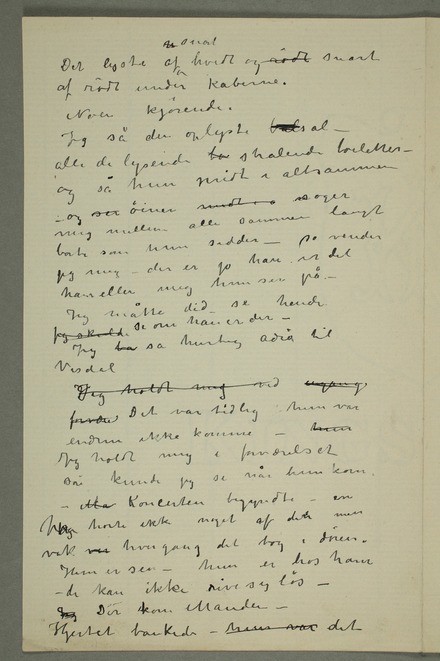 snat
Det lyste af hvidt og rødt snart
af rødt under kaberne.
Noen kjørende.
Jeg så den oplyste balsal –
alle de lysende strålende toiletter –
og så hun midt i altsammen
– og øiner søger
mig mellem alle sammen langt
borte som hun sidder – så vender
jeg mig – der er jo han er det
han eller mig hun ser på. –
Jeg måtte did se hende
jeg skulde se om han er der –
Jeg sa hurtig adiø til
Vesdel
Jeg holdt mig ved
Det var tidlig hun var
endnu ikke komme – hun
Jeg holdt mig i forværelset
så kunde jeg se når hun kom.
– Koncerten begyndte – en
Jeg hørte ikke noget af det men
var hvergang det tog i døren.
Hun er sen – hun er hos ham
– de kan ikke rive sig løs –
Der kom Manden –
Hjertet bankede – hun var det